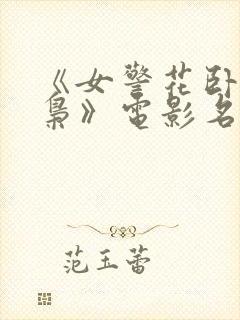 《女警花卧
枭》电影名
范玉蕾